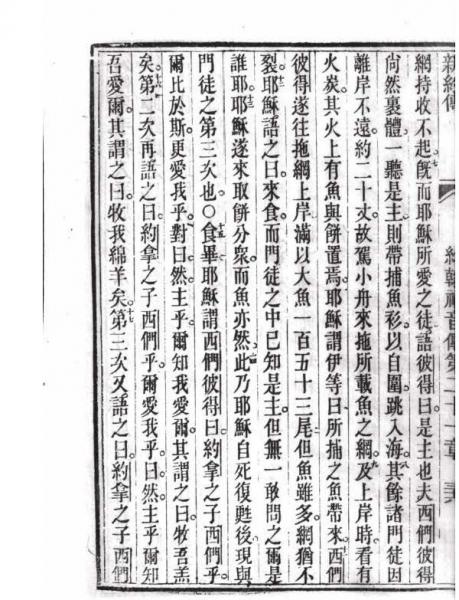 新約傳 約翰福音傳第二十一章
網持收不起。旣而耶穌所愛之徒語彼得曰。是主也。夫西們彼得
尙然裸體一聽是主。則帶捕魚衫以自圍。跳入海。其餘諸門徒因
離岸不遠。約二十丈。故駕小舟來拖所載魚之網。及上岸時看有
火炭。其火上有魚與餅置焉。耶穌謂伊等曰。所捕之魚帶來。西們
彼得遂往拖網上岸。滿以大魚一百五十三尾。但魚雖多。網猶不
裂。耶穌語之曰。來食。而門徒之中已知是主。但無一敢問之爾是
誰耶。耶穌遂來取餅分衆。而魚亦然。此乃耶穌自死復甦後現與
門徒之第三次也。○食畢耶穌謂西們彼得曰。約拿之子西們乎。
爾比於斯更愛我乎。對曰。然。主乎。爾知我愛爾。其謂之曰。牧吾羔
矣。第二次再語之曰。約拿之子西們乎。爾愛我乎。曰。然。主乎爾知
吾愛爾。其謂之曰。牧我綿羊矣。第三次又語之曰。約拿之子西們